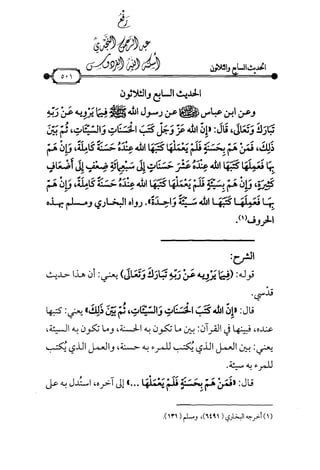 رفع
عبد الرحمن النجدي
أسكنه الله الفردوس
الحديث السابع والثلاثون
٥٠١
الحديث السابع والثلاثون
وعن ابن عباس ﷺ عن رسول الله ﷺ فِيمَا يَرْوِيه عَنْ رَبِّهِ
تَبَارَكَ وَتَعَالَى، قَالَ: «إِنَّ اللهَ عَزَّ وَجَلَّ كَتَبَ الْحَسَنَاتِ وَالسَّيِّئَاتِ، ثُمَّ بَيَّنَ
ذَلِكَ، فَمَنْ هَمَّ بِحَسَنَةٍ فَلَمْ يَعْمَلْهَا كَتَبَهَا اللهُ عِنْدَهُ حَسَنَةً كَامِلَةً، وَإِنْ هَمَّ
بِهَا فَعَمِلَهَا كَتَبَهَا اللهُ عِنْدَهُ عَشْرَ حَسَنَاتٍ إِلَى سَبْعِمِائَةِ ضِعْفٍ إِلَى أَضْعَافٍ
كَثِيرَةٍ، وَإِنْ هَمَّ بِسَيِّئَةٍ فَلَمْ يَعْمَلْهَا كَتَبَهَا اللهُ عِنْدَهُ حَسَنَةً كَامِلَةً، وَإِنْ هَمَّ
بِهَا فَعَمِلَهَا كَتَبَهَا اللهُ سَيِّئَةً وَاحِدَةً». رواه البخاري ومسلم بهذه
الحروف(١).
الشرح:
قوله: (فِيمَا يَرْوِيه عَنْ رَبِّهِ تَبَارَكَ وَتَعَالَى) يعني: أن هذا حديث
قدسي.
قال: «إِنَّ اللهَ كَتَبَ الْحَسَنَاتِ وَالسَّيِّئَاتِ، ثُمَّ بَيَّنَ ذَلِكَ» يعني: كتبها
عنده، فبينها في القرآن: بين ما تكون به الحسنة، وما تكون به السيئة،
يعني: بين العمل الذي يُكتب للمرء به حسنة، والعمل الذي يُكتب
للمرء به سيئة.
قال: «فَمَنْ هَمَّ بِحَسَنَةٍ فَلَمْ يَعْمَلْهَا ...» إلى آخره، استُدل به على
(١) أخرجه البخاري (٦٤٩١)، ومسلم (١٣١).